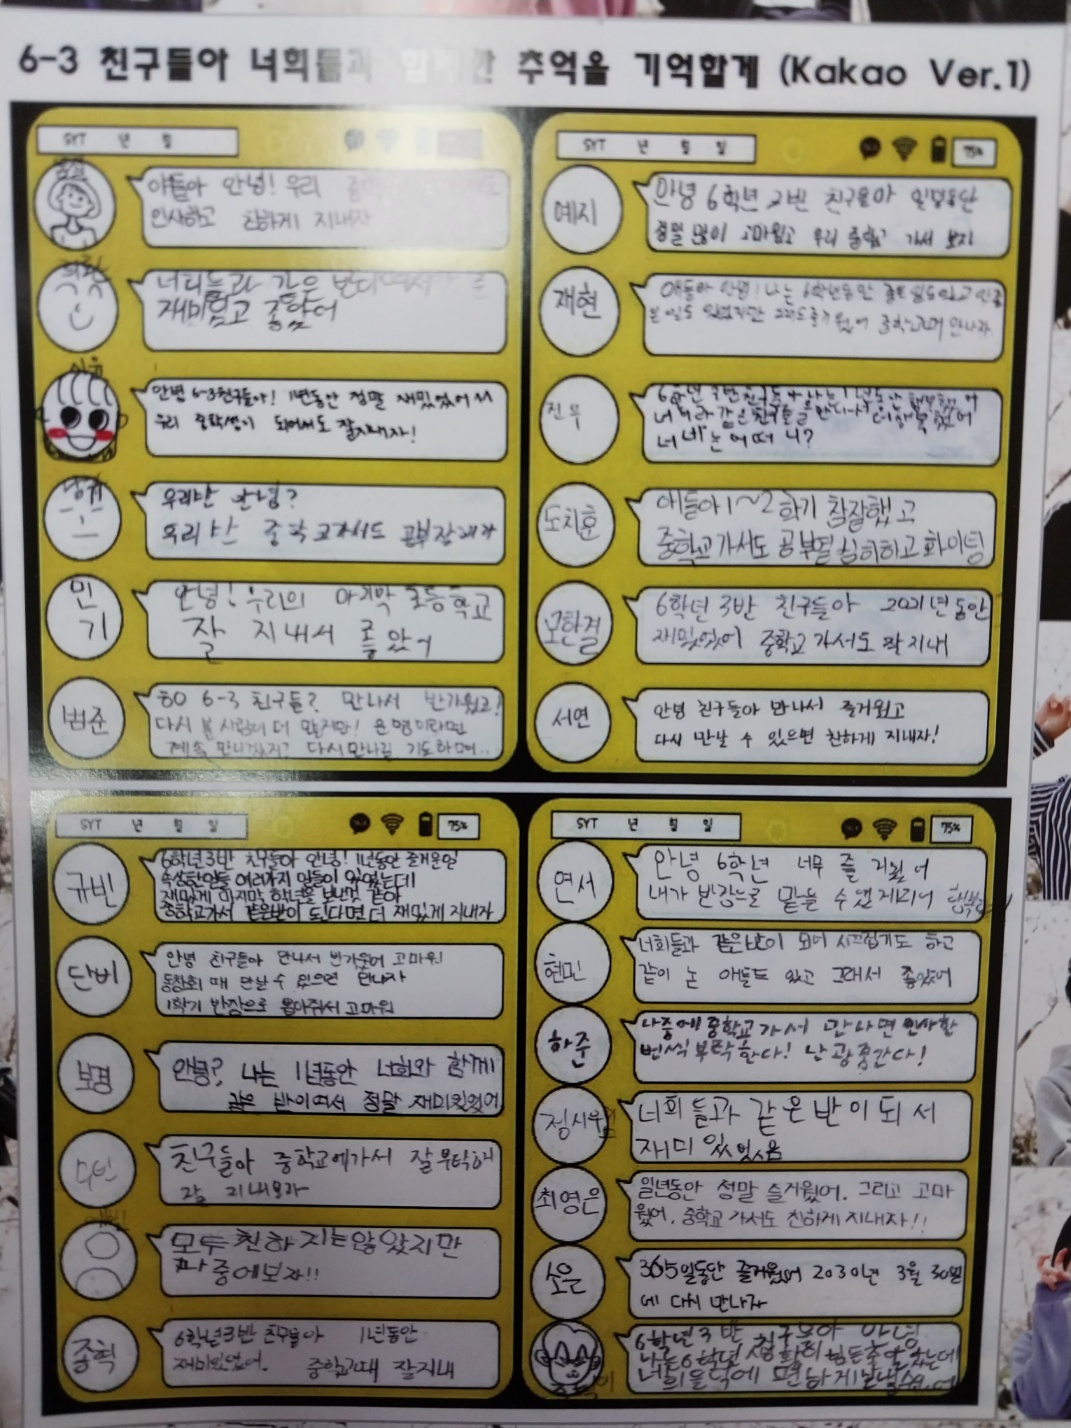 6-3 친구들아 너희들과 함께한 추억을 기억할게 (Kakao Ver.1)
SYT 년 월 일
야들아 안녕! 우리
인사하고 친하게 지내자
너희들과 같은 반
재미있고 좋았어
안녕 6-3친구들아! 1년동안 정말 재밌었어
우리 중학생이 되어서도 잘지내자!
우리반 안녕?
우리반 중학교가서도 공부잘해라
민기
안녕! 우리의 마지막 초등학교
잘 지내서 좋았어
범준
HO 6-3 친구들? 만나서 반가웠고!
다시 볼 사람이 더 많지만! 운명이라면
계속 만나겠지? 다시만나길 기도하며..
SYT 년 월 일 75%
예지
안녕 6학년 2반 친구들아 일년동안
정말 많이 고마웠고 우리 중학교 가서 보자
재현
얘들아 안녕! 나는 6학년동안
진우
6학년 3반 친구들아 나는 1년동안 행복했어
너희와 같은 친구들을 만나서 더 행복했어
너네는 어떠니?
도치훈
애들아 1~2학기 참잘했고
중학교가서도 공부열심히하고 화이팅
모한결
6학년 3반 친구들아 2021년동안
재밌었어 중학교가서도 잘 지내
서연
안녕 친구들아 만나서 즐거웠고
다시 만날 수 있으면 친하게 지내자!
SYT 년 월 일 75%
규빈
6학년3반 친구들아 안녕! 1년동안 즐거운일
속상한일등 여러가지 일들이 있었는데
재밌게 마지막 학년을 보낸것 같아
중학교가서 같은반이 된다면 더 재밌게 지내자
단비
안녕 친구들아 만나서 반가웠어 고마워
동창회 때 만날 수 있으면 만나자
1학기 반장으로 뽑아줘서 고마워
보경
안녕? 나는 1년동안 너희와 함께
같은 반이여서 정말 재미있었어
친구들아 중학교에가서 잘부탁해
잘 지내보자
모두 친하 지는않았지만
나중에보자!!
중혁
6학년3반 친구들아 1년동안
재미있었어. 중학교때 잘지내
SYT 년 월 일 75%
연서
안녕 6학년 너무 즐거웠어
내가 반장으로 맡을 수 있게되어
현민
너희들과 같은반이 되어 시끄럽기도 하고
같이 논 애들도 있고 그래서 좋았어
하준
나중에 중학교가서 만나면 인사한
번씩 부탁한다! 난 광중간다!
정시원
너희들과 같은반이되서
재미있었음
최영은
일년동안 정말 즐거웠어. 그리고 고마
웠어. 중학교 가서도 친하게 지내자!!
소은
365일동안 즐거웠어 2030년 3월 30일
에 다시 만나자
6학년3반 친구들아 안녕